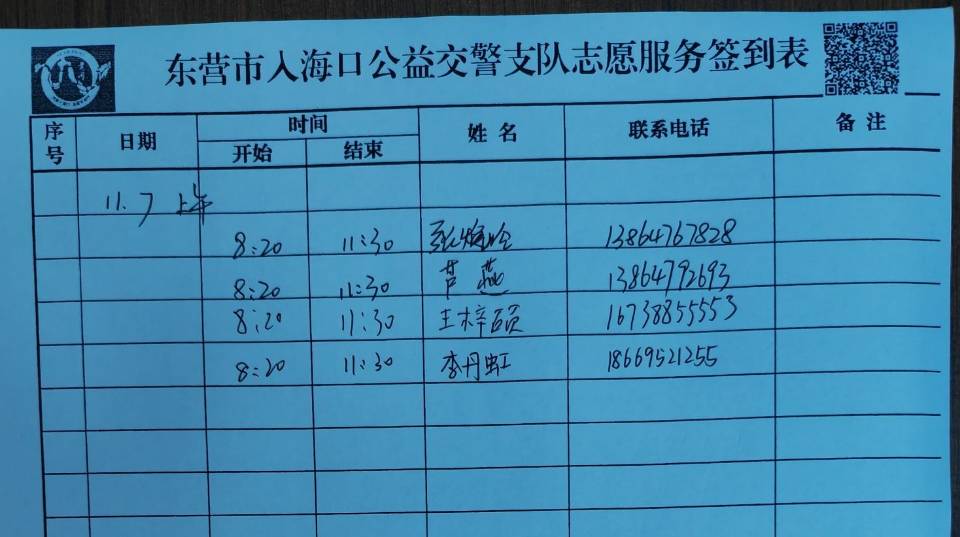 东营市入海口公益交警支队志愿服务签到表
序号 日期 时间 姓名 联系电话 备注
开始 结束
11.7 上午
8:20 11:30 13864767828
8:20 11:30 燕 13864792693
8:20 11:30 王梓硕 16738855553
8:20 11:30 李丹虹 18669521255